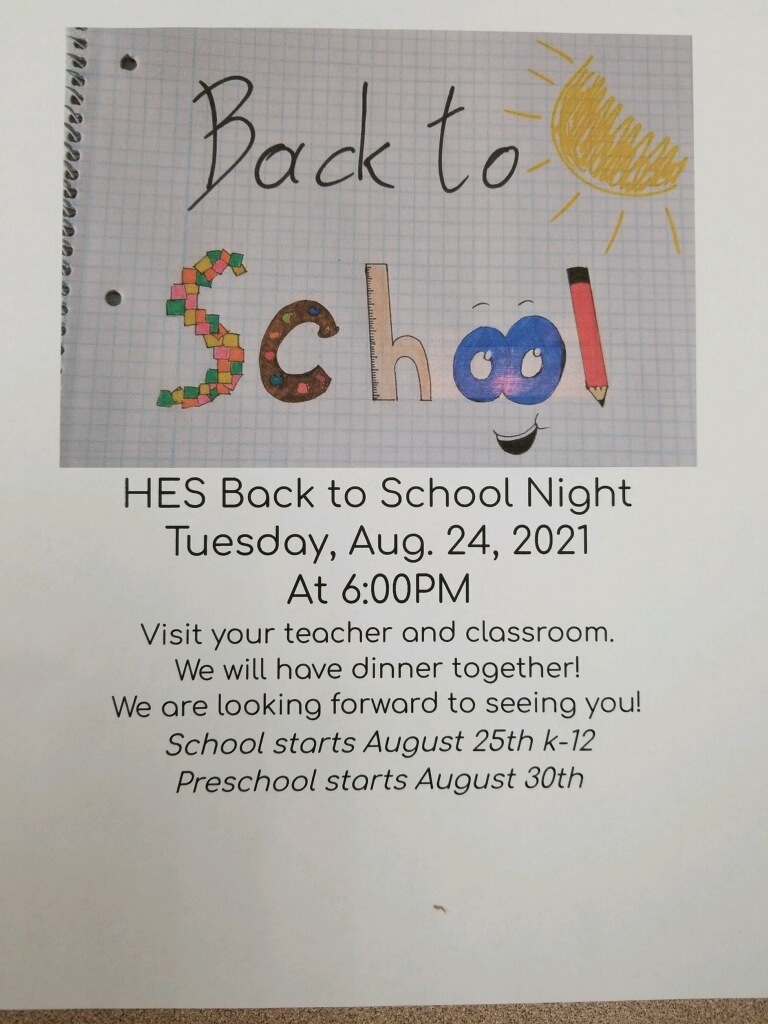 Back to
School
HES Back to School Night
Tuesday, Aug. 24, 2021
At 6:00PM
Visit your teacher and classroom.
We will have dinner together!
We are looking forward to seeing you!
School starts August 25th k-12
Preschool starts August 30th